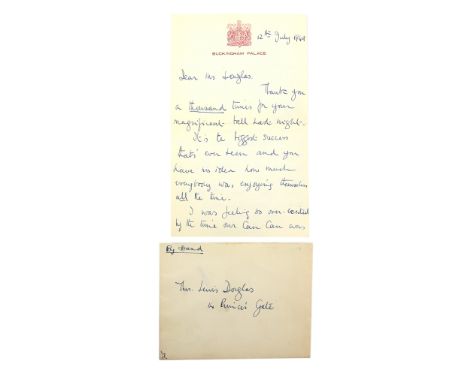 12th July 1949
BUCKINGHAM PALACE
Dear Mrs Douglas.
Thank you
a thousand times for your
magnificent ball last night.
It's the biggest success
that's ever been and you
have no idea how much
everybody was enjoying themselves
all the time.
I was feeling so over-
by the time our Can Can was
By Hand
Mrs. Lewis Douglas
14 Princes Gate